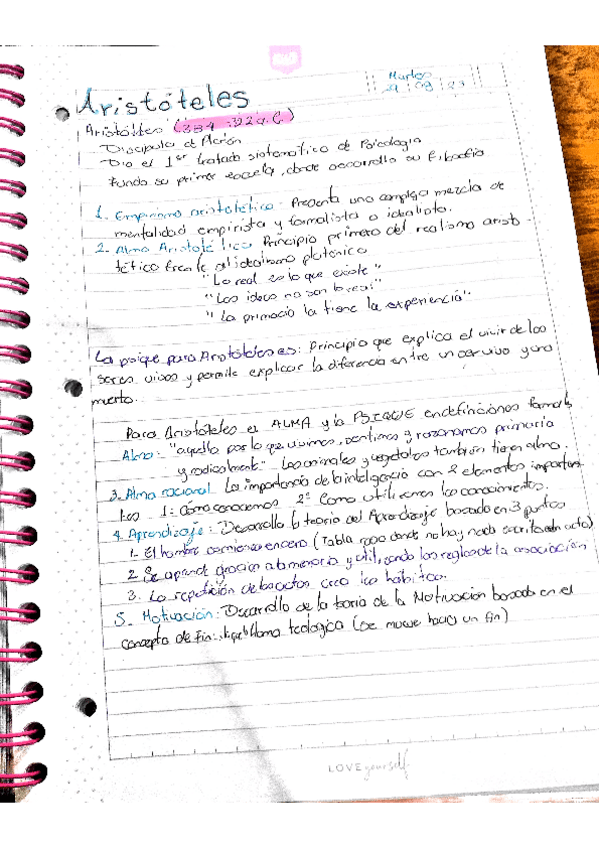 Martes
09 23
Aristóteles
Aristóteles (384-322 a.C.)
Discípulo de Platón
Dio el 1er tratado sistematico de Psicologia
Fundo su primer escuela, donde desarrollo su filosofia
1. Empirismo aristotélico: Presenta una compleja mezcla de
mentalidad empirista y formalista o idealista.
2. Alma Aristotélica Principio primero del realismo aristo-
tético frente al idealismo platónico
"Lo real es lo que existe"
"Las ideas no son lo real"
"La primacia la tiene la experiencia"
La psique para Aristóteles es: Principio que explica el vivir de los
seres vivos y permite explicar la diferencia entre un ser vivo y uno
muerto.
Para Aristóteles el ALMA y la PSIQUE en definiciónes formal
Alma: "aquello por lo que vivimos, sentimos y razonamos primaria
y radicalmente" Los animales y vegetales tambien tienen alma.
3. Alma racional La importancia de la inteligencia con 2 elementos importan-
tes 1: Cómo conocemos 2º Como utilizamos los conocimientos.
4. Aprendizaje: Desarrollo la teoria del Aprendizaje basado en 3 puntos
1. El hombre comienza en cero (Tabla rasa donde no hay nada escrito
2. Se aprende gracias a la memoria y utilizando las reglas de la asociación
3. La repetición de los actos crea los hábitos.
5. Motivación: Desarrollo de la teoria de la Motivación basada en el
concepto de fin: alma teologica (se mueve hacia un fin)
LOVE yourself